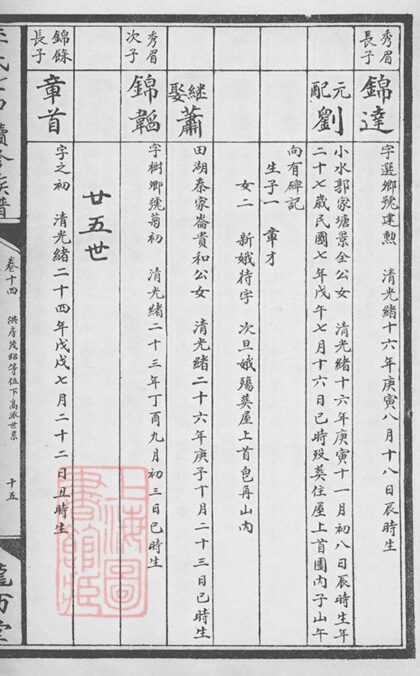 秀眉長子
錦達
字選鄉號建勲 清光緒十六年庚寅八月十八日辰時生
元配劉
小水郭家塘景全公女 清光緒十六年庚寅十一月初八日辰時生年
二十七歲民國七年戊午七月十六日巳時歿葬住屋上首園內子山午
向有碑記
生子一 章才
女二 新娥待字 次旦娥殤葬屋上首皂角山內
継娶蕭
田湖秦家崙貴和公女 清光緒二十六年庚子十月二十三日巳時生
秀眉次子
錦韜
字樹鄉號菊初 清光緒二十三年丁酉九月初三日巳時生
廿五世
錦餘長子
章首
字之初 清光緒二十四年戊戌七月二十二日丑時生
氏七四續修族譜
卷十四 洪房茂紹等位下高派世系 十五
上海圖書館藏